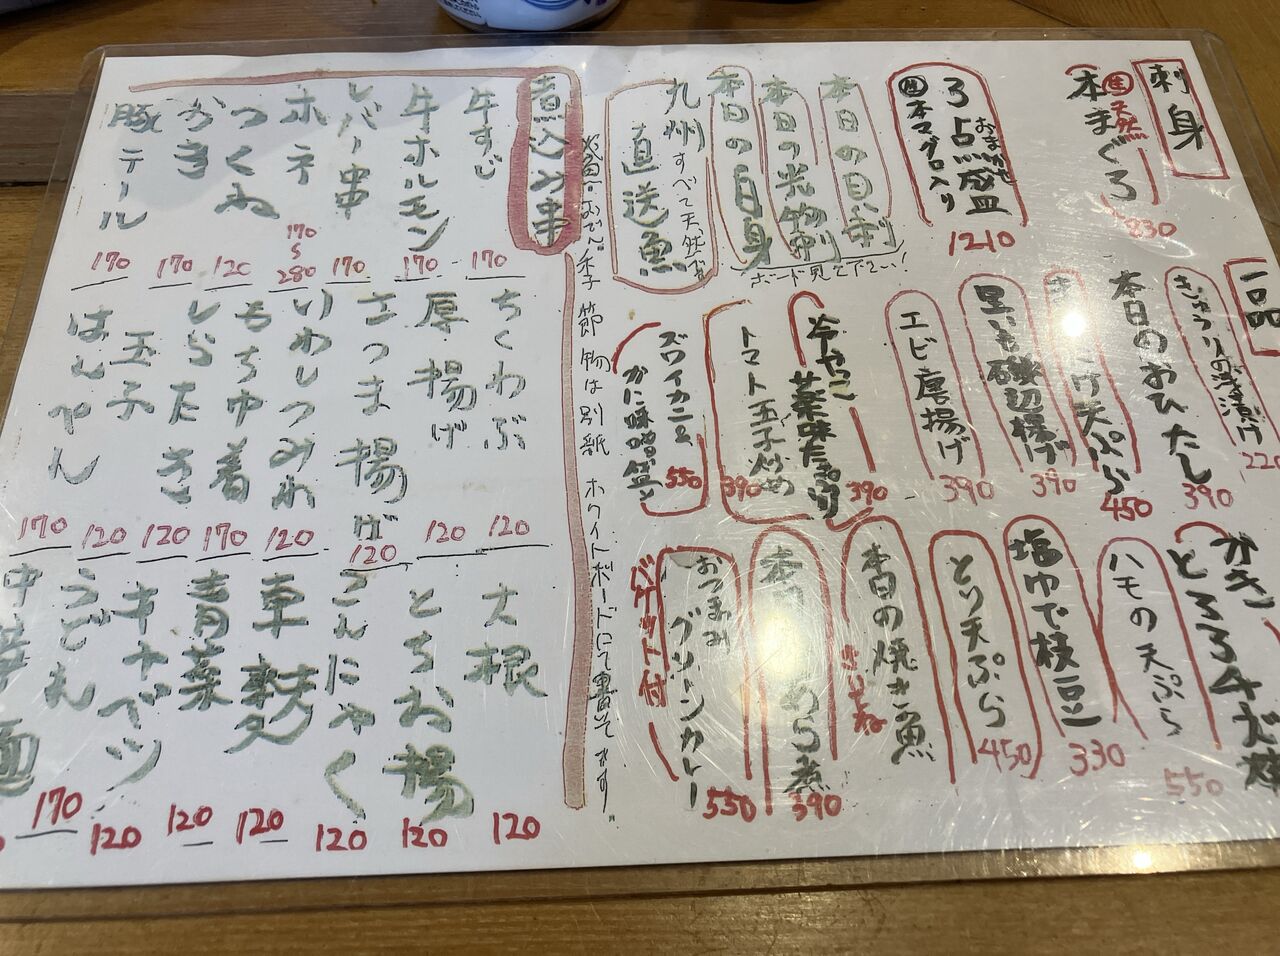 刺身
生 天然
本まぐろ
830
おまかせ
3点盛皿
生本マグロ入り
1210
本日の貝刺
本日の光物刺
本日の白身
ボード見て下さい!
九州すべて天然魚
直送魚
一品
きゅうりの浅漬け
220
本日のおひたし
390
け天ぷら
450
里いも磯辺揚げ
390
エビ唐揚げ
390
冷やっこ
薬味たっぷり
390
トマト玉子炒め
390
ズワイカニと
かに味噌
550
かき
とろろ
ハモの天ぷら
550
塩ゆで枝豆
330
とり天ぷら
450
本日の焼き魚
本
あら煮
390
おつまみ
グリーンカレー
バゲット付
550
煮込み串
牛すじ
170
牛ホルモン
170
レバー串
170
ホネ
170
280
つくね
120
かき
170
豚テール
170
おでん。季節物は別紙 ホワイトボードにて書いてます。
ちくわぶ
120
厚揚げ
120
さつま揚げ
120
いわしつみれ
120
もちゆ着
170
しらたき
120
玉子
120
はんぺん
170
大根
120
とちお揚
120
こんにゃく
120
車麩
120
青菜
120
キャベツ
120
うどん
170
中華麺